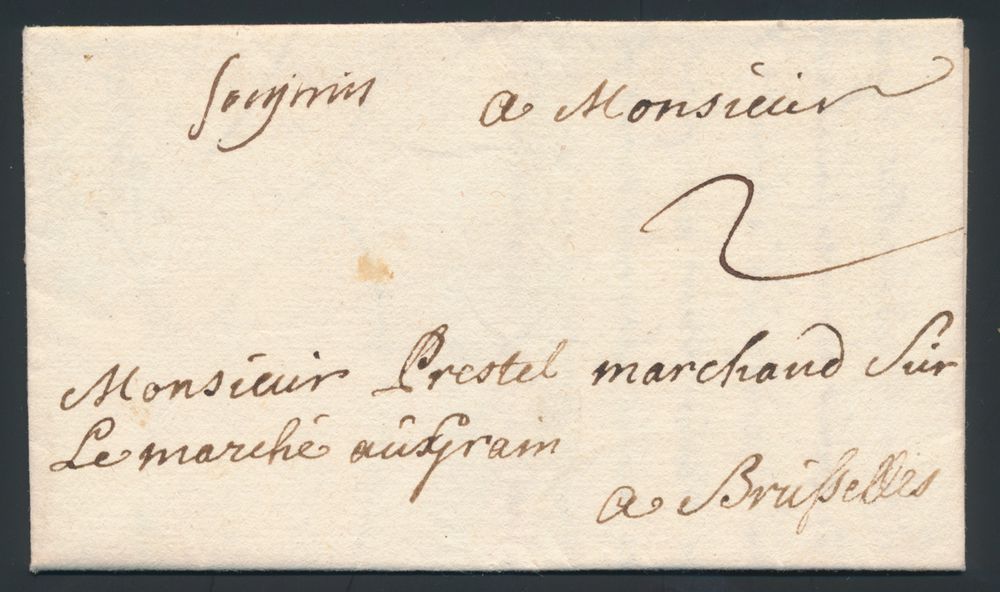 a Monsieur
2
Monsieur Prestel marchand Sur
Le marché aûx grain
a Brusselles